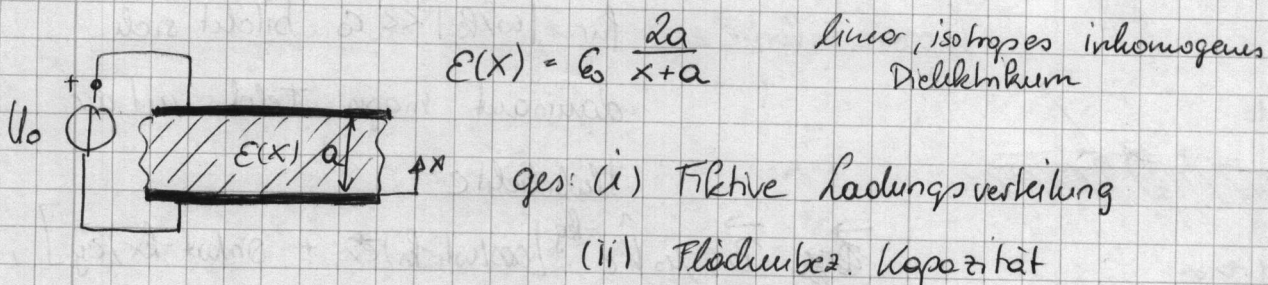 ε(x) = ε₀ 2a / (x+a)
linear, isotropes inhomogenes
Dielektrikum
+
U₀
ε(x)
a
x
ges: (i) Fiktive Ladungsverteilung
(ii) Flächenbez. Kapazität